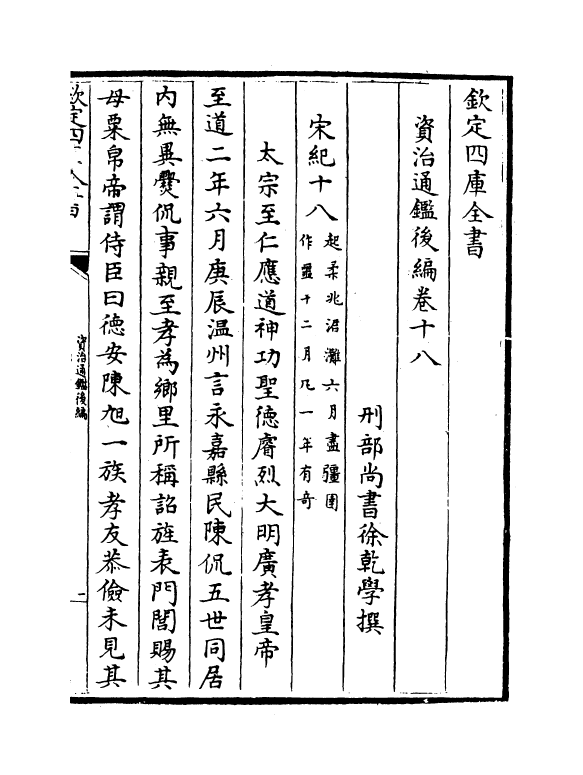 欽定四庫全書
資治通鑑後編卷十八
刑部尚書徐乾學撰
宋紀十八
起柔兆涒灘六月盡彊圉
作噩十二月凡一年有奇
太宗至仁應道神功聖徳睿烈大明廣孝皇帝
至道二年六月庚辰温州言永嘉縣民陳侃五世同居
内無異爨侃事親至孝為鄉里所稱詔旌表門閭賜其
母粟帛帝謂侍臣曰徳安陳旭一族孝友恭儉未見其
資治通鑑後編